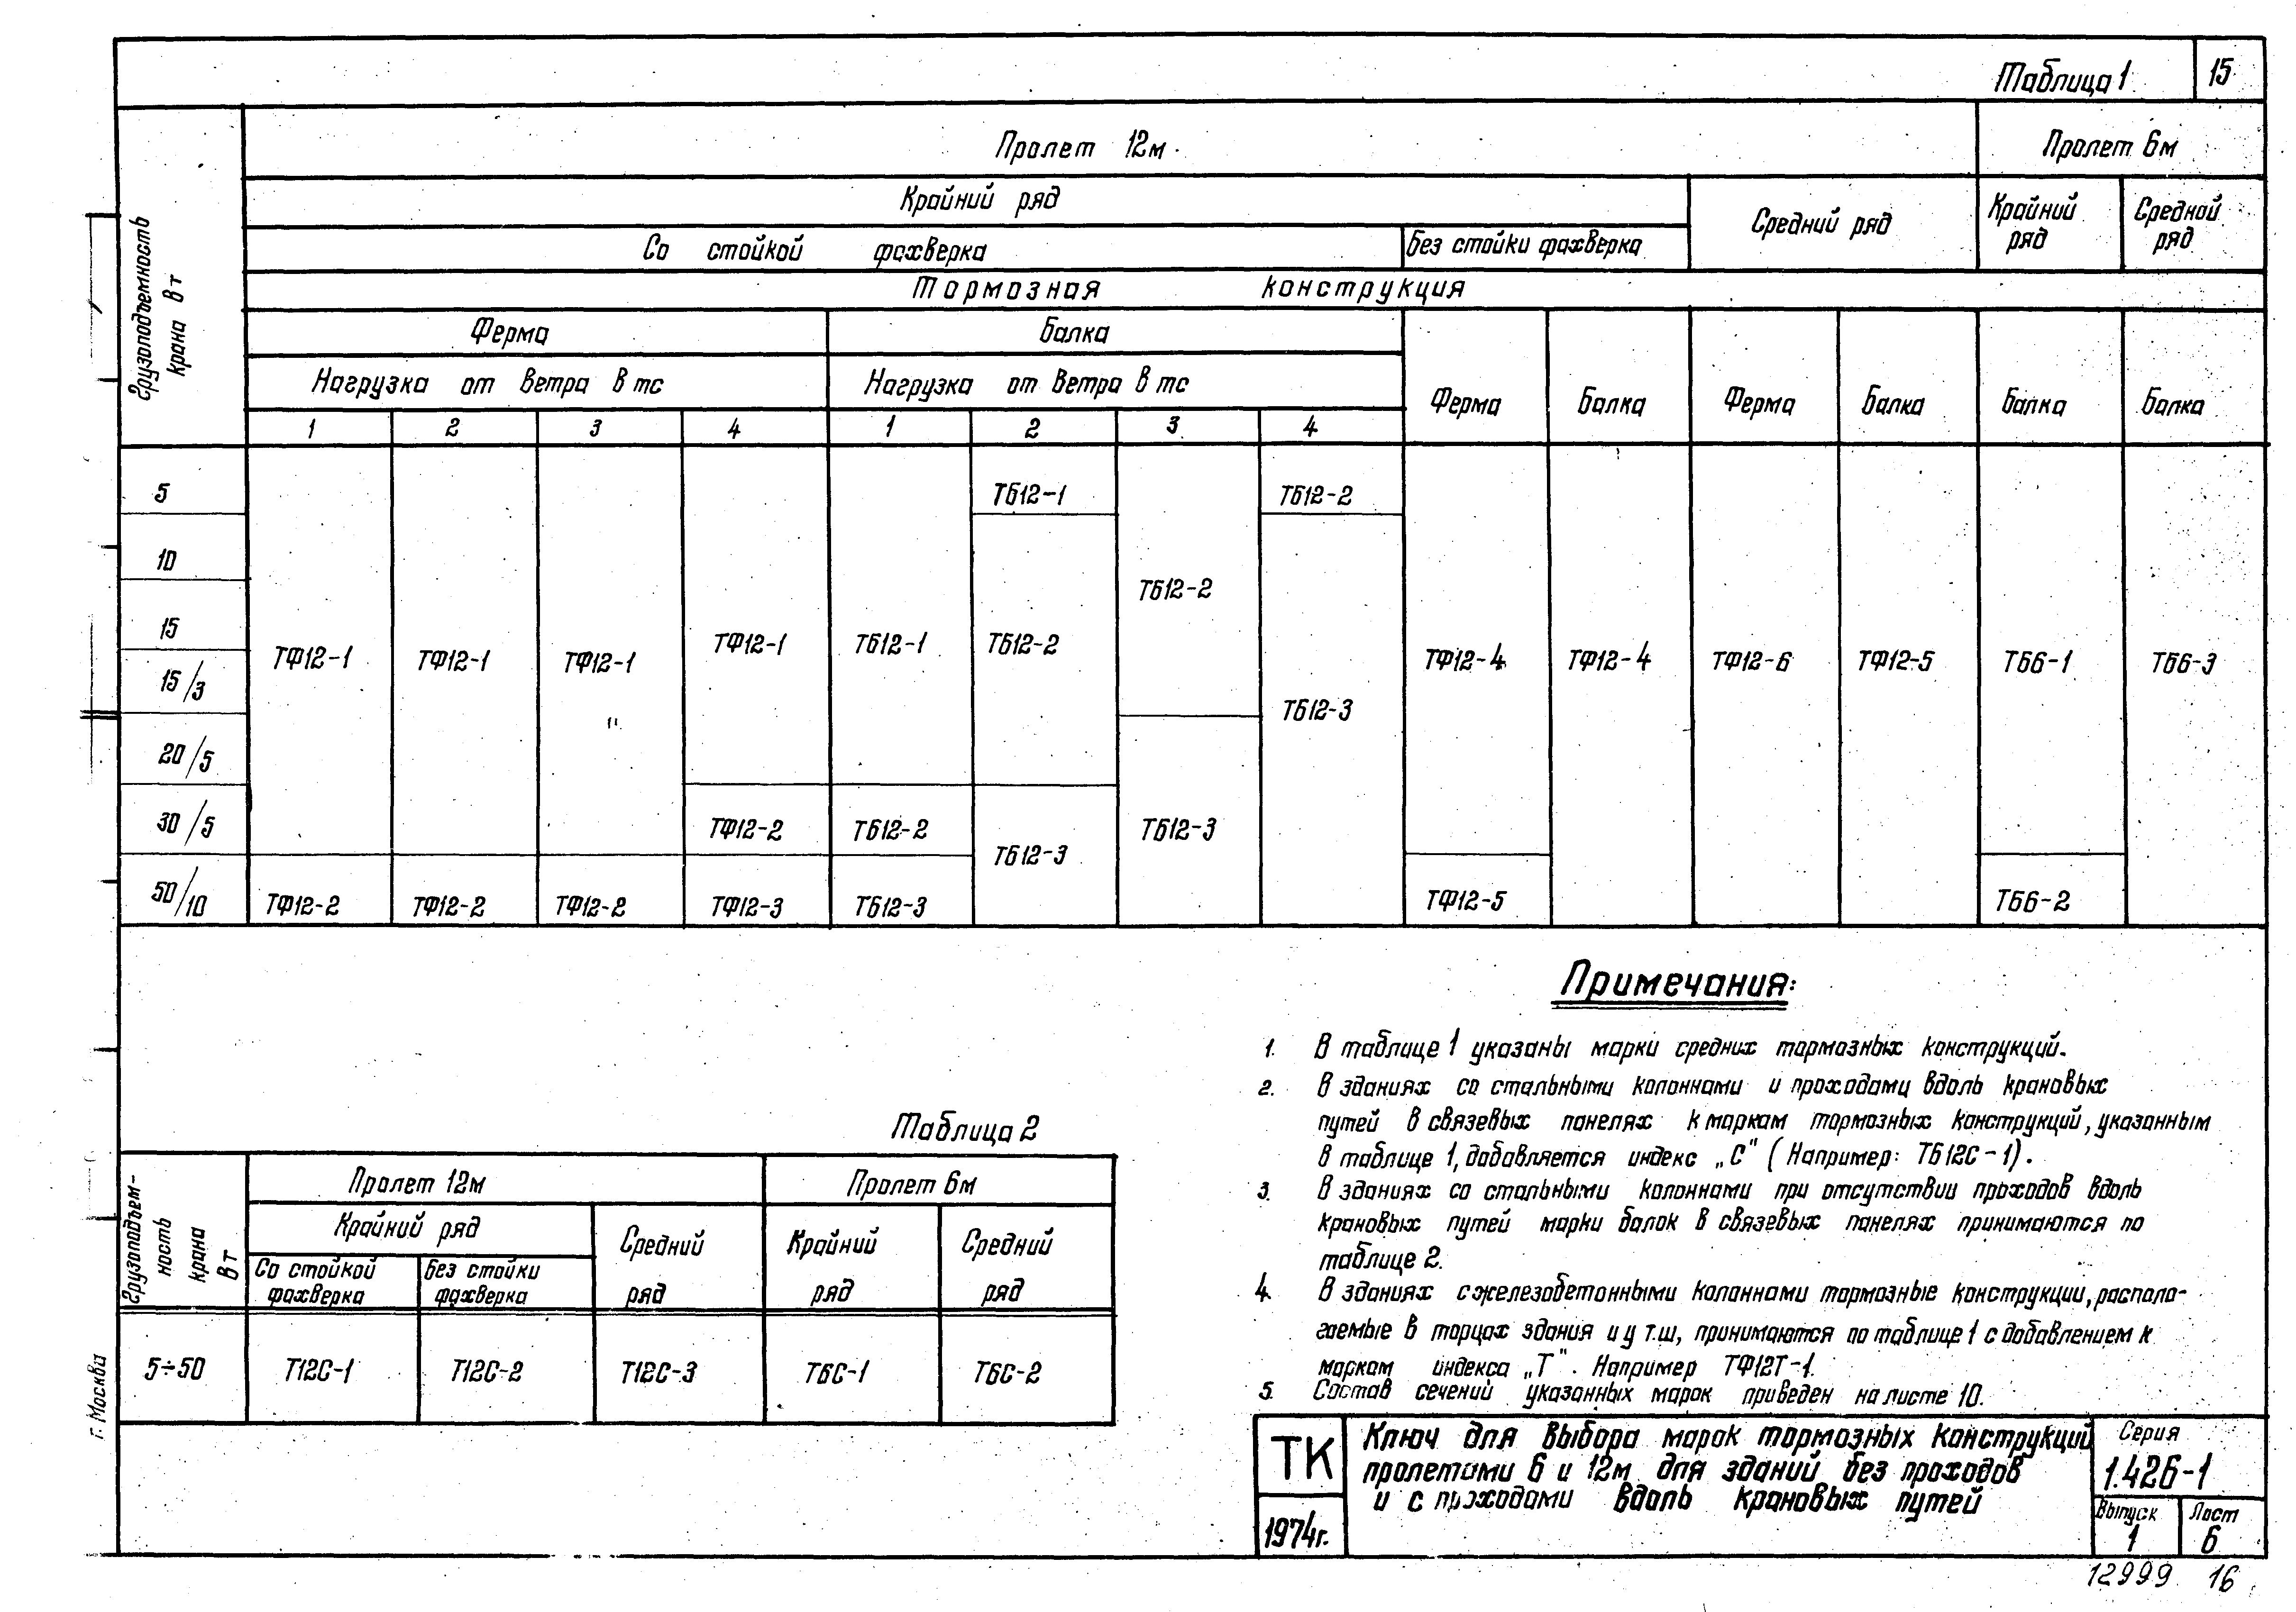 Таблица 1
15
Грузоподъемность крана в т
Пролет 12м
Пролет 6м
Крайний ряд
Средний ряд
Крайний ряд
Средной ряд
Со стойкой фахверка
Без стойки фахверка
Тормозная конструкция
Ферма
Балка
Нагрузка от ветра в тс
Нагрузка от ветра в тс
Ферма
Балка
Ферма
Балка
Балка
Балка
1 2 3 4 1 2 3 4
5
ТБ12-1
ТБ12-2
10
ТБ12-2
15
ТФ12-1 ТФ12-1 ТФ12-1 ТФ12-1 ТБ12-1 ТБ12-2
ТФ12-4 ТФ12-4 ТФ12-6 ТФ12-5 ТБ6-1 ТБ6-3
15/3
ТБ12-3
20/5
30/5
ТФ12-2 ТБ12-2 ТБ12-3 ТБ12-3
50/10
ТФ12-2 ТФ12-2 ТФ12-2 ТФ12-3 ТБ12-3 ТФ12-5 ТБ6-2
Примечания:
1. В таблице 1 указаны марки средних тормозных конструкций.
2. В зданиях со стальными колоннами и проходами вдоль крановых
путей в связевых панелях к маркам тормозных конструкций, указанным
в таблице 1, добавляется индекс „С" (Например: ТБ12С-1).
3. В зданиях со стальными колоннами при отсутствии проходов вдоль
крановых путей марки балок в связевых панелях принимаются по
таблице 2.
4. В зданиях с железобетонными колоннами тормозные конструкции, распола-
гаемые в торцах здания и у т.ш, принимаются по таблице 1 с добавлением к
маркам индекса „Т". Например ТФ12Т-1.
5. Состав сечений указанных марок приведен на листе 10.
Таблица 2
Грузоподъем-
ность
крана
в т
Пролет 12м
Пролет 6м
Крайний ряд
Средний ряд
Крайний ряд
Средний ряд
Со стойкой фахверка
Без стойки фахверка
5÷50
Т12С-1 Т12С-2 Т12С-3 Т6С-1 Т6С-2
г. Москва
ТК
1974г.
Ключ для выбора марок тормозных конструкций
пролетами 6 и 12м для зданий без проходов
и с проходами вдоль крановых путей
Серия
1.426-1
Выпуск
1
Лист
6
12999 16